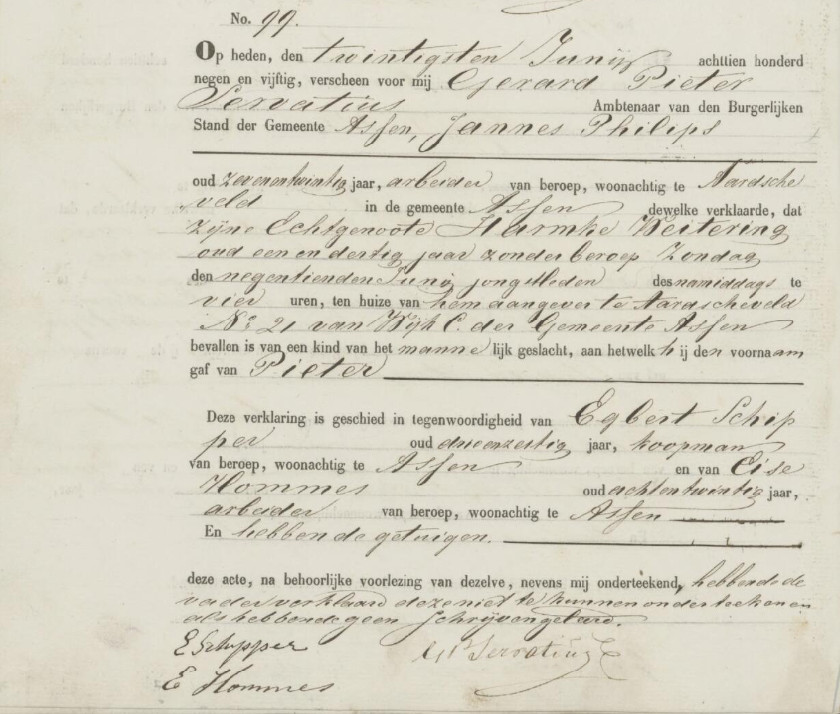 No. 99.
Op heden, den twintigsten Junij achttien honderd
negen en vijftig, verscheen voor mij Gerard Pieter
Servatius Ambtenaar van den Burgerlijken
Stand der Gemeente Assen, Jannes Philips
oud zevenentwintig jaar, arbeider van beroep, woonachtig te Aardsche
veld in de gemeente Assen dewelke verklaarde, dat
zijne Echtgenoote Harmke Weitering
oud een en dertig jaar zonder beroep Zondag
den negentienden Junij jongstleden des namiddags te
vier uren, ten huize van hem aangever te Aardscheveld
No 21 van Wijk C. der Gemeente Assen
bevallen is van een kind van het mannelijk geslacht, aan hetwelk hij den voornaam
gaf van Pieter
Deze verklaring is geschied in tegenwoordigheid van Egbert Schip
per oud drieenzestig jaar, koopman
van beroep, woonachtig te Assen en van Eise
Hommes oud achtentwintig jaar,
arbeider van beroep, woonachtig te Assen
En hebben de getuigen.
deze acte, na behoorlijke voorlezing van dezelve, nevens mij onderteekend, hebbende de
vader verklaard deze niet te kunnen onderteekenen
als hebbende geen Schrijven geleerd.
E Schipper GP Servatius
E Hommes